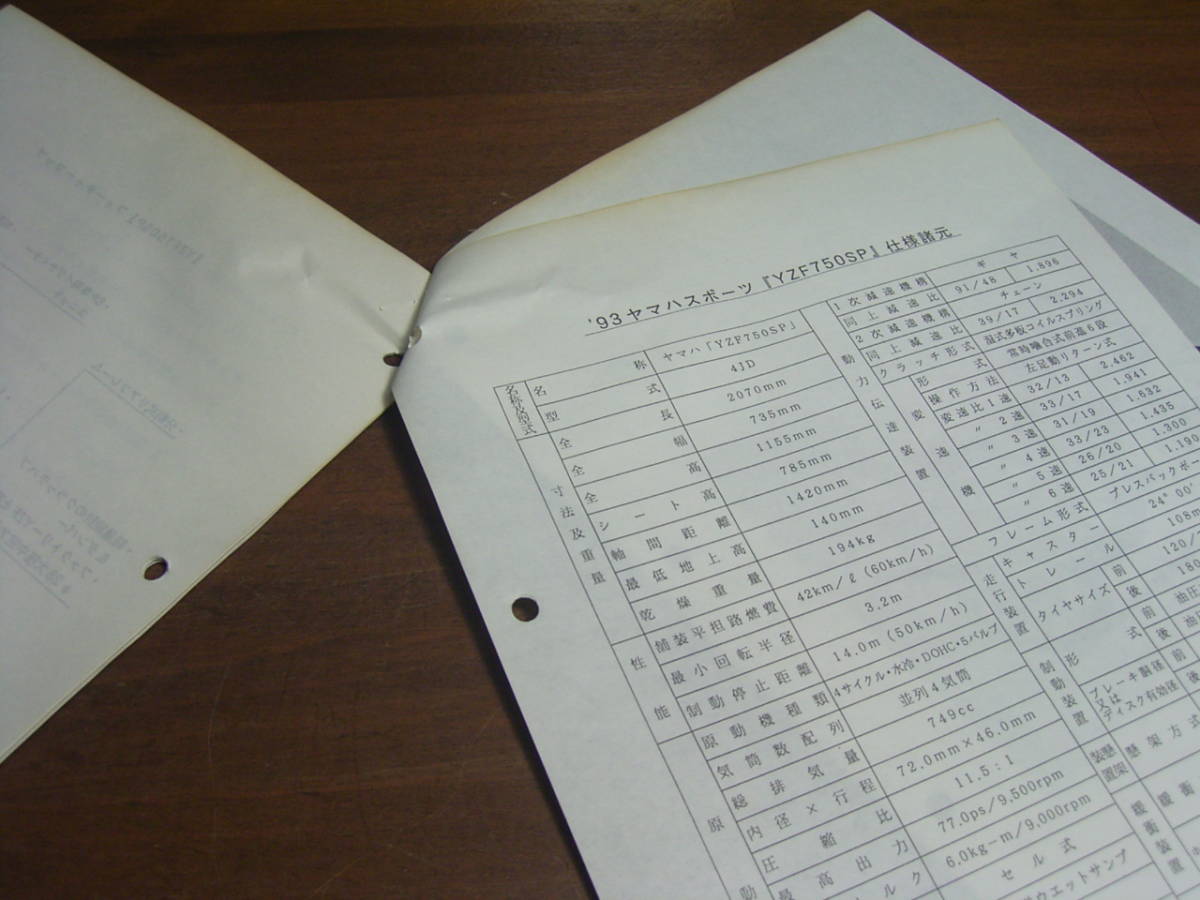 '93ヤマハスポーツ『YZF750SP』仕様諸元
名称及型式
名 称 ヤマハ「YZF750SP」
型 式 4JD
寸法及重量
全 長 2070mm
全 幅 735mm
全 高 1155mm
シート高 785mm
軸間距離 1420mm
最低地上高 140mm
乾燥重量 194kg
性能
舗装平担路燃費 42km/ℓ(60km/h)
最小回転半径 3.2m
制動停止距離 14.0m(50km/h)
原動
原動機種類 4サイクル・水冷・DOHC・5バルブ
気筒数配列 並列4気筒
総排気量 749cc
内径×行程 72.0mm×46.0mm
圧縮比 11.5:1
最高出力 77.0ps/9,500rpm
ルク 6.0kg-m/9,000rpm
セル式
ウエットサンプ
動力伝達装置
1次減速機構 ギヤ
同上減速比 91/48 1.896
2次減速機構 チェーン
同上減速比 39/17 2.294
クラッチ形式 湿式多板コイルスプリング
変速機
形式 常時噛合式前進6段
操作方法 左足動リターン式
変速比1速 32/13 2.462
〃 2速 33/17 1.941
〃 3速 31/19 1.632
〃 4速 33/23 1.435
〃 5速 26/20 1.300
〃 6速 25/21 1.190
走行装置
フレーム形式 プレスバックボ
キャスター 24°00'
トレール 108m
タイヤサイズ 前 120/7
後 180
制動装置
形式 前 油圧
後 油
ブレーキ胴径又はディスク有効径 前
後
懸架装置
懸架方式
緩衝装置
緩衝